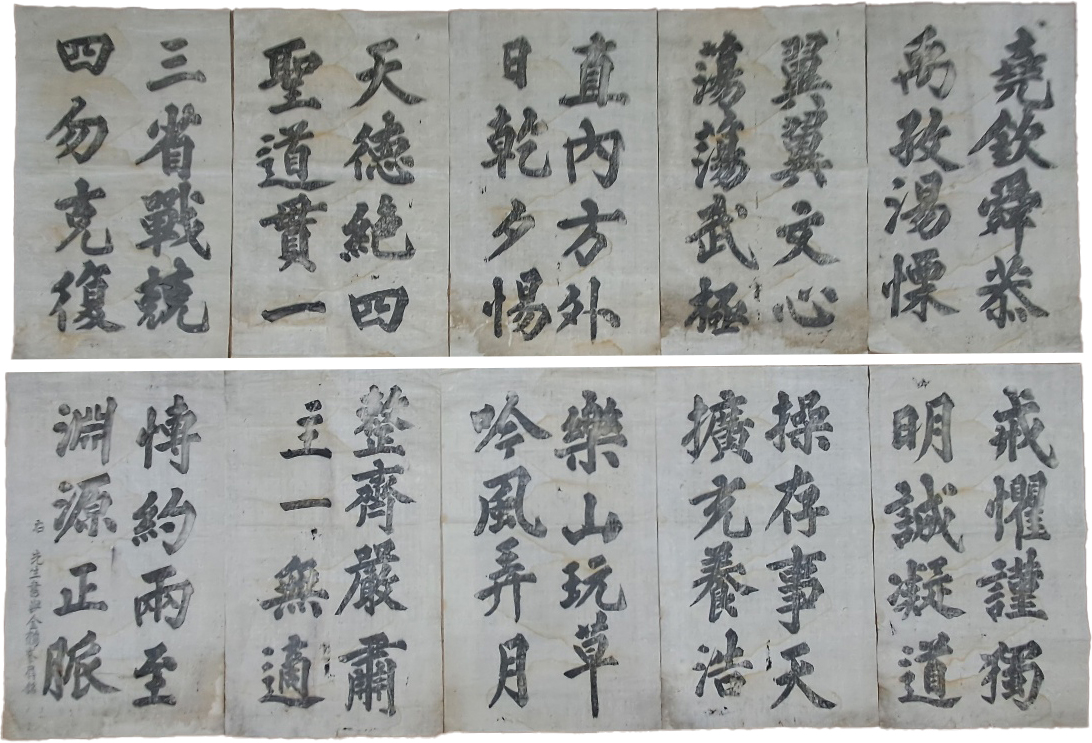 堯欽舜恭
禹孜湯慄
翼翼文心
蕩蕩武極
直內方外
日乾夕惕
天德絶四
聖道貫一
三省戰兢
四勿克復
戒懼謹獨
明誠凝道
操存事天
擴充養浩
樂山玩草
吟風弄月
整齊嚴肅
主一無適
愽約兩至
淵源正脈
右 先生書與金鶴峯屛銘